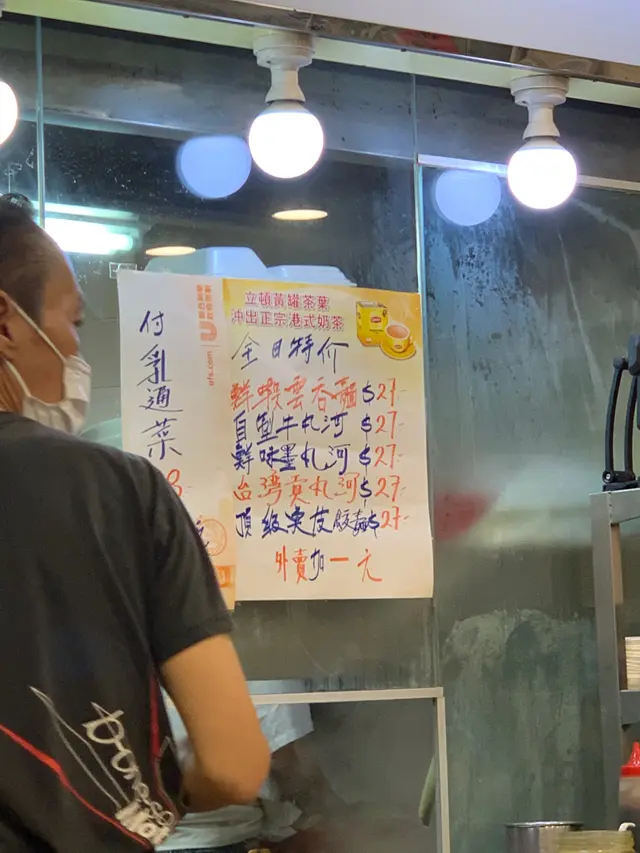 付乳通菜
ufs.com
立頓黃罐茶葉
沖出正宗港式奶茶
全日特价
鮮蝦雲吞麵 $27-
自製牛丸河 $27-
鮮味墨丸河 $27-
台灣貢丸河 $27-
頂級魚皮餃麵 $27-
外賣加一元